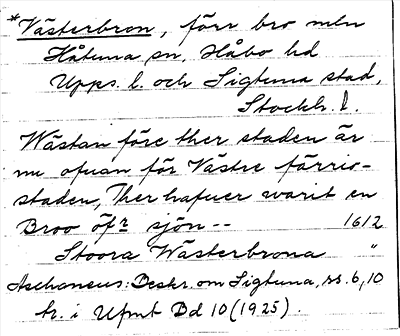 *Västerbron, förr bro mln
Håtuna sn, Håbo hd
Upps. l. och Sigtuna stad,
Stockh. l.
Wästan före ther staden är
nu ofuan för Västre färrio-
staden, Ther hafuer warit en
Broo öfr sjön-- 1612
Stoora Wästerbrona "
Aschaneus: Beskr. om Sigtuna, ss. 6, 10
tr. i Ufmt Bd 10 (1925)